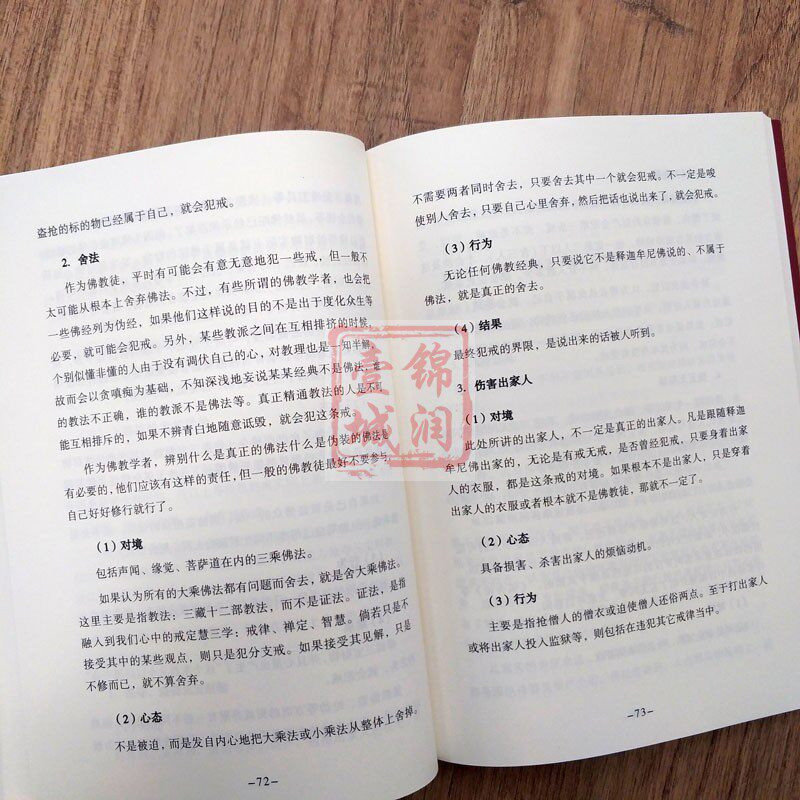 盗抢的标的物已经属于自己，就会犯戒。
2. 舍法
作为佛教徒，平时有可能会有意无意地犯一些戒，但一般不
太可能从根本上舍弃佛法。不过，有些所谓的佛教学者，也会把
一些佛经列为伪经，如果他们这样说的目的不是出于度化众生等
必要，就可能会犯戒。另外，某些教派之间在互相排挤的时候，
个别似懂非懂的人由于没有调伏自己的心，对教理也是一知半解，
故而会以贪嗔痴为基础，不知深浅地妄说某某经典不是佛法，谁
的教法不正确，谁的教派不是佛法等。真正精通教法的人是不可
能互相排斥的，如果不辨青白地随意诋毁，就会犯这条戒。
作为佛教学者，辨别什么是真正的佛法什么是伪装的佛法是
有必要的，他们应该有这样的责任，但一般的佛教徒最好不要参与，
自己好好修行就行了。
（1）对境
包括声闻、缘觉、菩萨道在内的三乘佛法。
如果认为所有的大乘佛法都有问题而舍去，就是舍大乘佛法。
这里主要是指教法：三藏十二部教法，而不是证法。证法，是指
融入到我们心中的戒定慧三学；戒律、禅定、智慧。倘若只是不
接受其中的某些观点，则只是犯分支戒。如果接受其见解，只是
不修而已，就不算舍弃。
（2）心态
不是被迫，而是发自内心地把大乘法或小乘法从整体上舍掉。
–72–
不需要两者同时舍去，只要舍去其中一个就会犯戒。不一定是唆
使别人舍去，只要自己心里舍弃，然后把话也说出来了，就会犯戒。
（3）行为
无论任何佛教经典，只要说它不是释迦牟尼佛说的、不属于
佛法，就是真正的舍去。
（4）结果
最终犯戒的界限，是说出来的话被人听到。
3. 伤害出家人
（1）对境
此处所讲的出家人，不一定是真正的出家人。凡是跟随释迦
牟尼佛出家的，无论是有戒无戒，是否曾经犯戒，只要身着出家
人的衣服，都是这条戒的对境。如果根本不是出家人，只是穿着
出家人的衣服或者根本就不是佛教徒，那就不一定了。
（2）心态
具备损害、杀害出家人的烦恼动机。
（3）行为
主要是指抢僧人的僧衣或迫使僧人还俗两点。至于打出家人
或将出家人投入监狱等，则包括在违犯其它戒律当中。
–73–
锦润
壹城